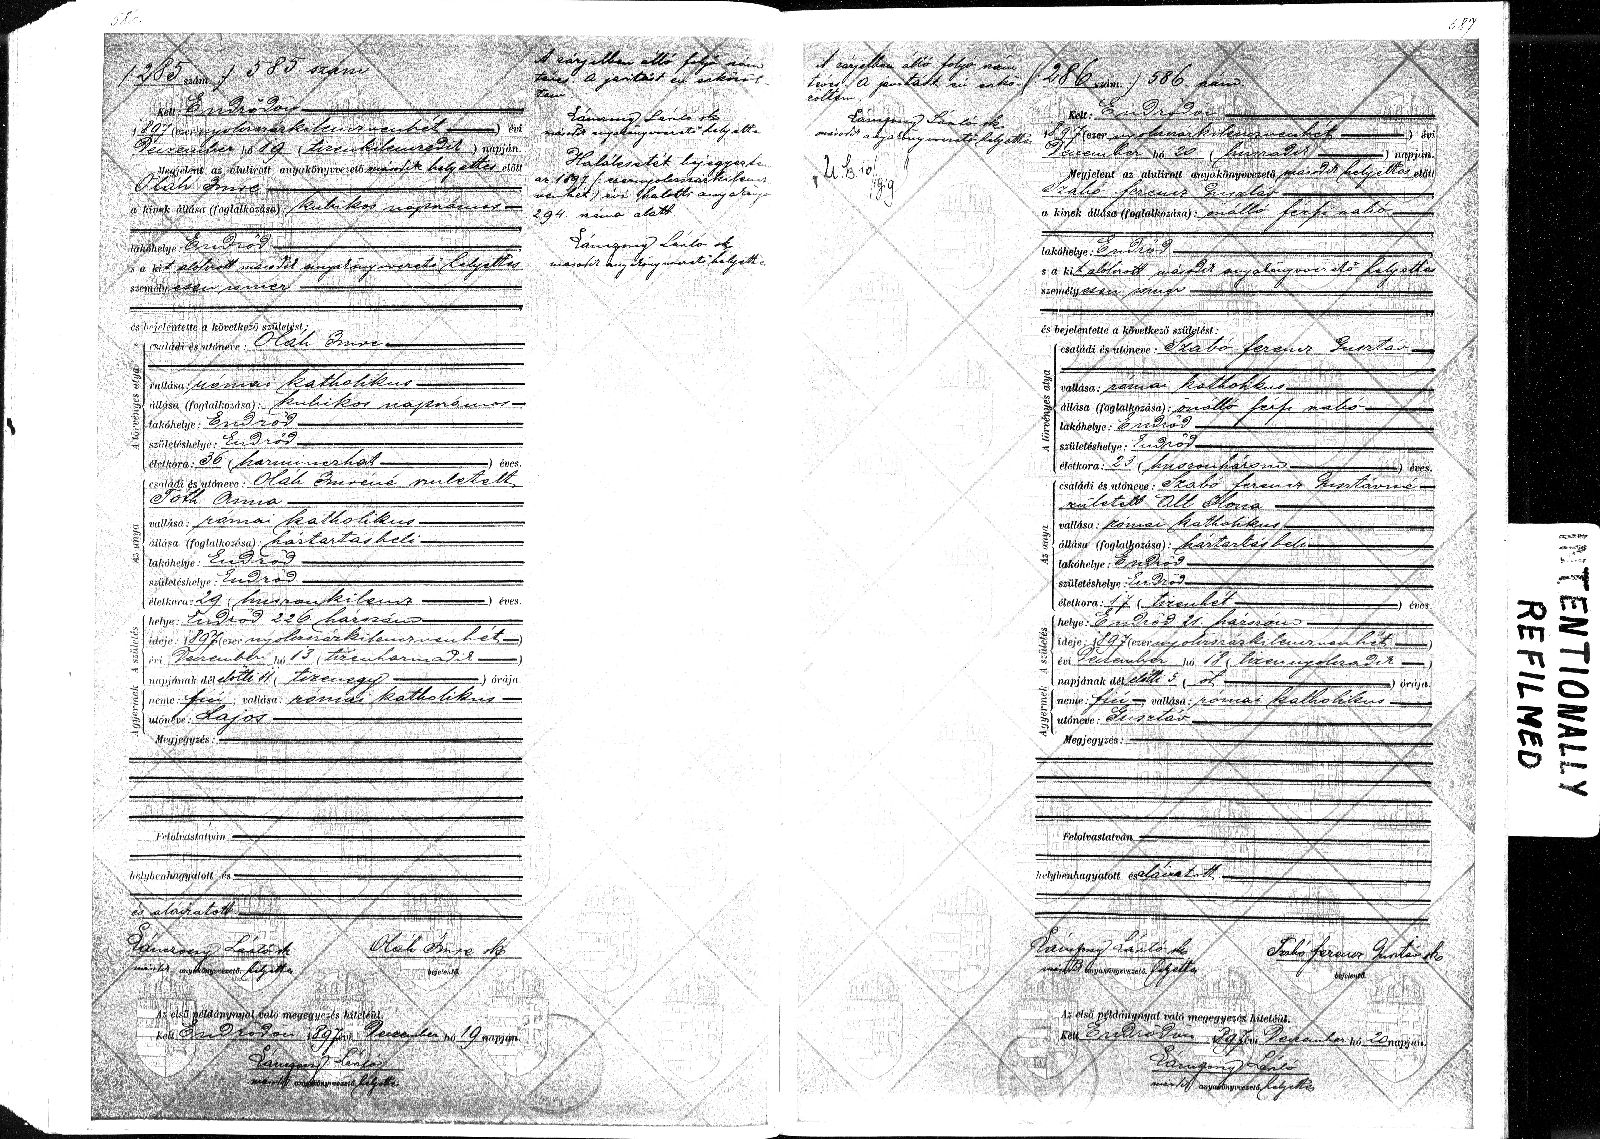 585 szám
Kelt Endrődön
1897 (ezernyolcszázkilenczvenhét) évi
December hó 19 (tizenkilenczedik) napján.
Megjelent az alulirott anyakönyvvezető második helyettes előtt
Oláh Imre
a kinek állása (foglalkozása): kubikos napszámos
lakóhelye: Endrőd
s a kit alulirott második anyakönyvvezető helyettes
személyesen ismer
és bejelentette a következő születést:
A törvényes atya
családi és utóneve: Oláh Imre
vallása: római katholikus
állása (foglalkozása): kubikos napszámos
lakóhelye: Endrőd
születéshelye: Endrőd
életkora: 36 (harminczhat) éves.
Az anya
családi és utóneve: Oláh Imréné született
Tóth Anna
vallása: római katholikus
állása (foglalkozása): háztartásbeli
lakóhelye: Endrőd
születéshelye: Endrőd
életkora: 29 (huszonkilencz) éves.
A születés
helye: Endrőd 226 házszám
ideje: 1897 (ezernyolcszázkilenczvenhét)
évi December hó 13 (tizenharmadik)
napjának dél előtti 11 (tizenegy) órája.
A gyermek
neme: fiú; vallása: római katholikus
utóneve: Lajos
Megjegyzés:
Felolvastatván
helybenhagyatott és
és aláiratott
László
Oláh Imre sk
második anyakönyvvezető helyettes
bejelentő.
Az első példánynyal való megegyezés hiteléül.
Kelt Endrődön 1897 évi December hó 19 napján.
László
második anyakönyvvezető helyettes
László sk
második anyakönyvvezető helyettes
Halálesetét bejegyezték
az 1897 (ezernyolcszázkilencz-
venhét) évi halotti anyakönyv
294. szám alatt
László sk
második anyakönyvvezető helyettes
687
László sk
második anyakönyvvezető helyettes
586. szám
Kelt: Endrődön
1897 (ezernyolcszázkilenczvenhét) évi
December hó 20 (huszadik) napján.
Megjelent az alulirott anyakönyvvezető második helyettes előtt
Szabó Ferencz Gusztáv
a kinek állása (foglalkozása): önálló férfi szabó
lakóhelye: Endrőd
s a kit alulirott második anyakönyvvezető helyettes
személyesen ismer
és bejelentette a következő születést:
A törvényes atya
családi és utóneve: Szabó Ferencz Gusztáv
vallása: római katholikus
állása (foglalkozása): önálló férfi szabó
lakóhelye: Endrőd
születéshelye: Endrőd
életkora: 23 (huszonhárom) éves.
Az anya
családi és utóneve: Szabó Ferencz Gusztávné
született Ilona
vallása: római katholikus
állása (foglalkozása): háztartásbeli
lakóhelye: Endrőd
születéshelye: Endrőd
életkora: 17 (tizenhét) éves
A születés
helye: Endrőd 21. házszám
ideje: 1897 (ezernyolcszázkilenczvenhét)
évi December hó 18 (tizennyolczadik)
napjának dél előtti 5 (öt) órája.
A gyermek
neme: fiú; vallása: római katholikus
utóneve: Gusztáv
Megjegyzés:
Felolvastatván
helybenhagyatott és aláiratott
László sk
Szabó Ferencz Gusztáv sk
második anyakönyvvezető helyettes
bejelentő.
Az első példánynyal való megegyezés hiteléül.
Kelt Endrődön 1897 évi December hó 20 napján.
László
második anyakönyvvezető helyettes
INTENTIONALLY
REFILMED